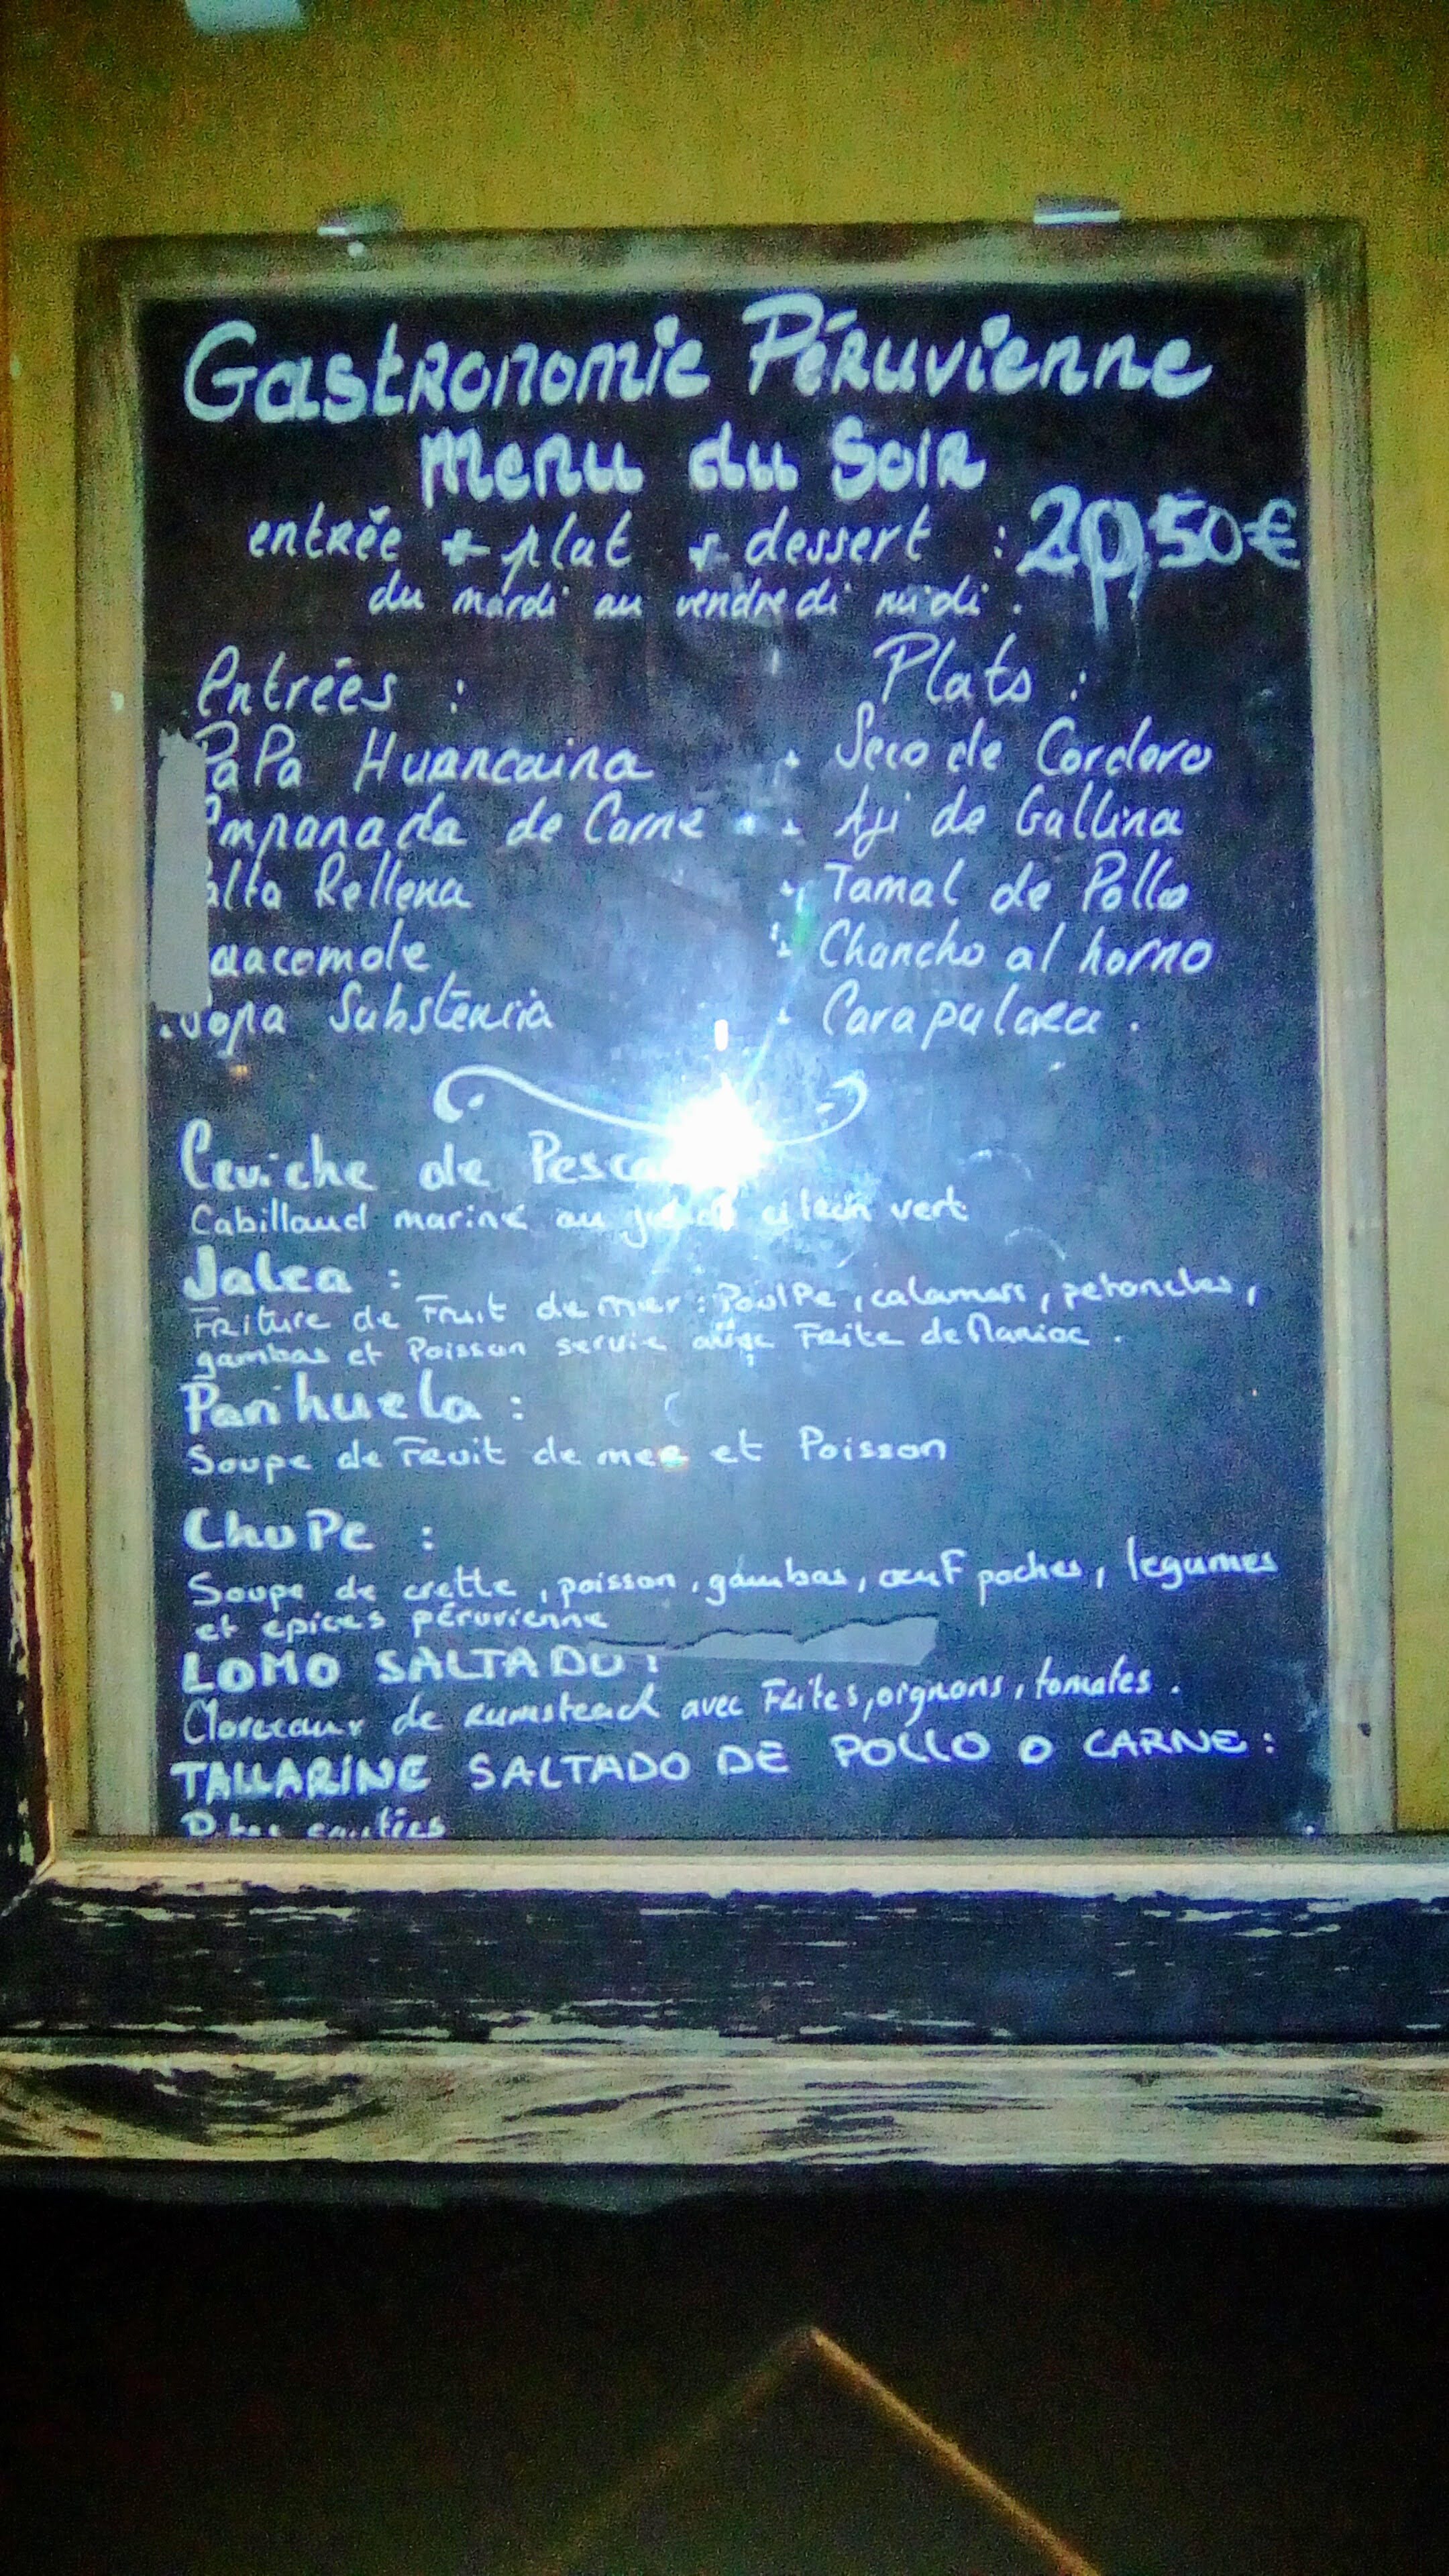 Gastronomie Péruvienne
Menu du Soir
entrée + plat + dessert : 20,50€
du mardi au vendredi midi .
Entrées :
PaPa Huancaina
Empanada de Carne
alta Rellena
uacomole
Sopa Substencia
Plats :
Seco de Cordero
Aji de Gallina
Tamal de Pollo
Chancho al horno
Carapulcra .
Ceviche de Pesca
Cabillaud mariné au citron vert
Jalea :
Friture de Fruit de mer : Poulpe , calamars , petoncles ,
gambas et Poisson servie avec Frite de Manioc .
Parihuela :
Soupe de Fruit de mer et Poisson
ChuPe :
Soupe de , poisson , gambas , œuf poches , legumes
et epices péruvienne
LOMO SALTADO :
Morceaux de rumsteack avec Frites , oignons , tomates .
TALLARINE SALTADO DE POLLO O CARNE :
sautées